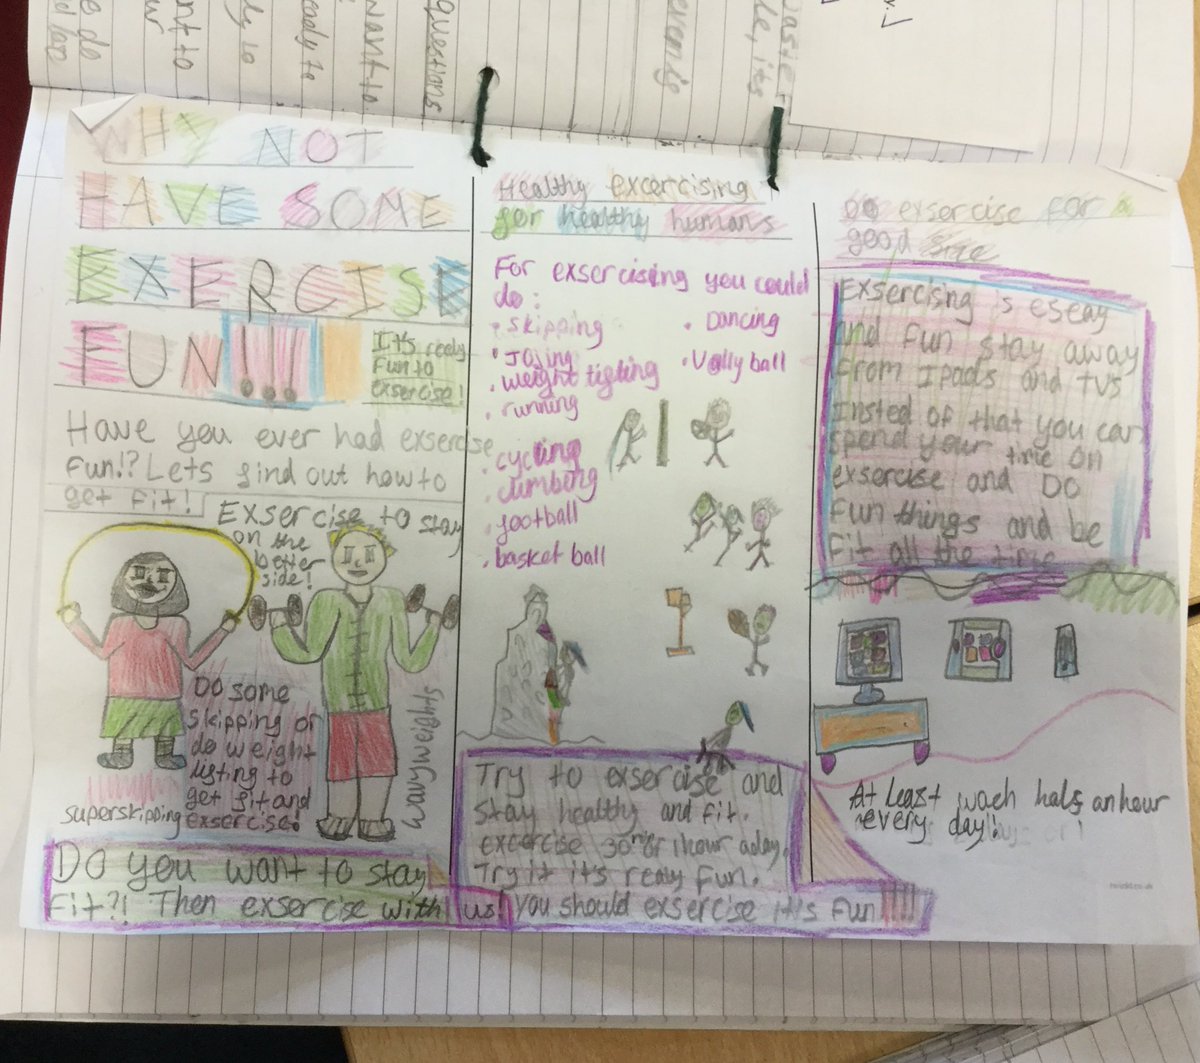 WHY NOT
HAVE SOME
EXERCISE
FUN!!!
It's realy
Fun to
exercise!
Have you ever had exsercise
Fun!? Lets find out how to
get fit!
Exsercise to stay
on the
better
side!
Do some
skipping or
do weight
listing to
get fit and
exsercise!
superskipping
wavyweights
Do you want to stay
Fit?! Then exsercise with us!
Healthy excercising
for healthy humans
For exsercising you could
do:
• skipping
• Joging
• weight
• running
• cycling
• climbing
• football
• basket ball
• Dancing
• Vollyball
Try to exsercise and
stay healthy and fit.
excercise 30 or 1hour a day.
Try it it's realy fun.
you should exsercise it's Fun!!!!
Do exsercise for a
good size
Exsercising is eseay
and fun stay away
From Ipads and tvs
Insted of that you can
spend your time on
exsercise and Do
Fun things and be
Fit all the time
At Least wach half an hour
every day!
questions
want to